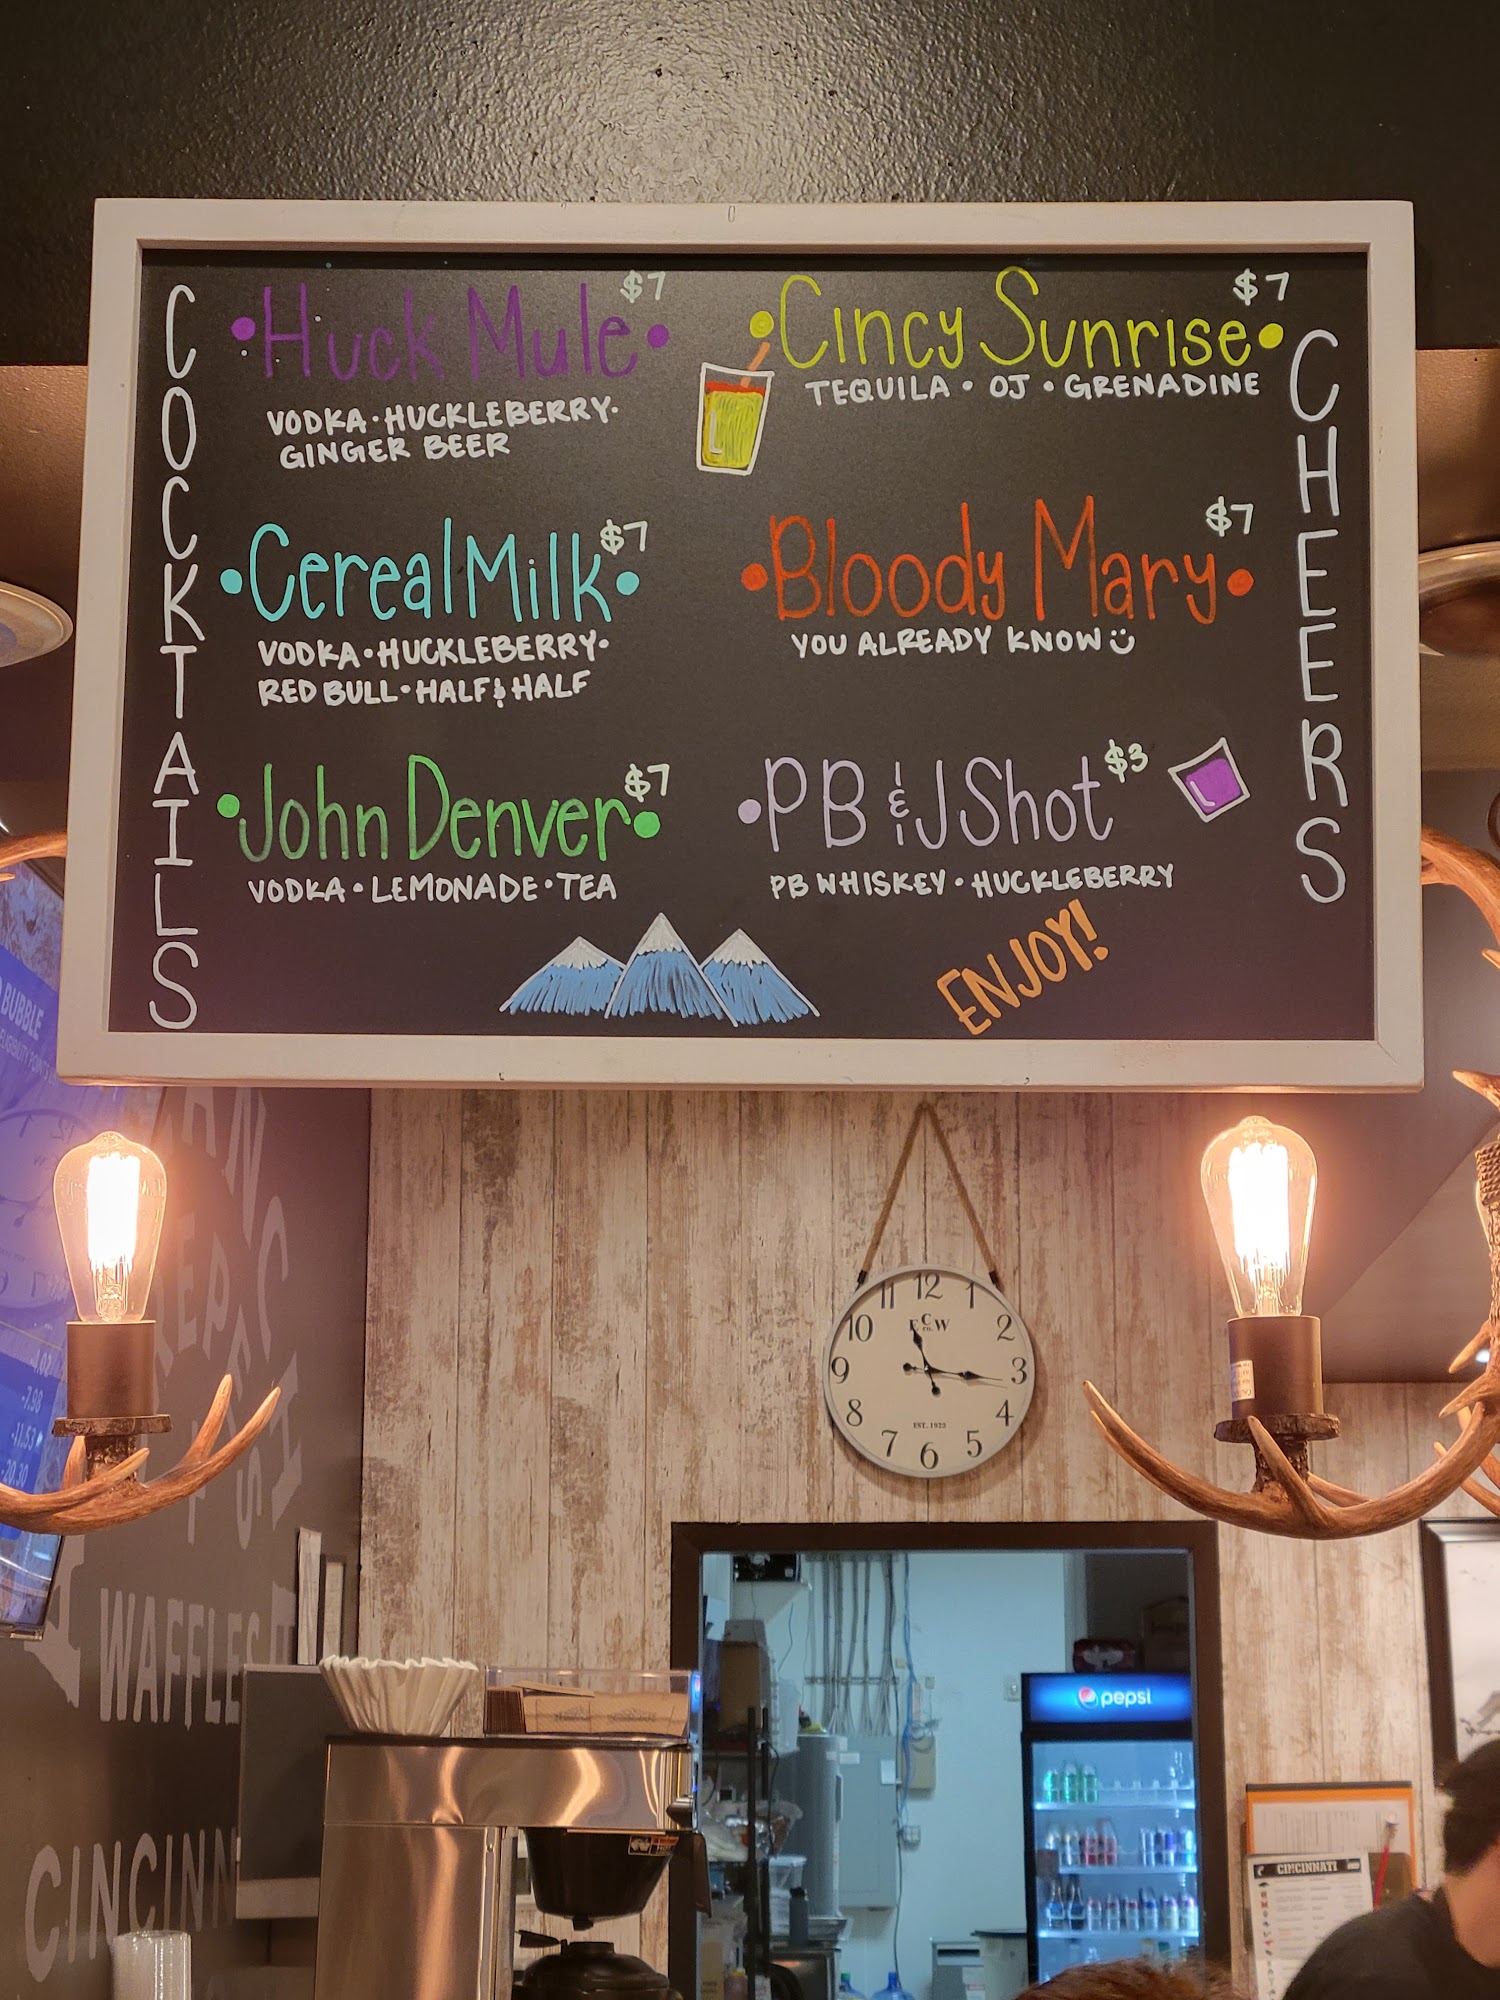 COCKTAILS
Huck Mule $7
VODKA • HUCKLEBERRY •
GINGER BEER
Cereal Milk $7
VODKA • HUCKLEBERRY •
RED BULL • HALF & HALF
John Denver $7
VODKA • LEMONADE • TEA
Cincy Sunrise $7
TEQUILA • OJ • GRENADINE
Bloody Mary $7
YOU ALREADY KNOW
PB & J Shot $3
PB WHISKEY • HUCKLEBERRY
ENJOY!
CHEERS
BUBBLE
12
11
1
10
2
9
3
8
4
7
5
6
ECW
CO.
EST. 1922
WAFFLES
CINCINN
pepsi
CINCINNATI